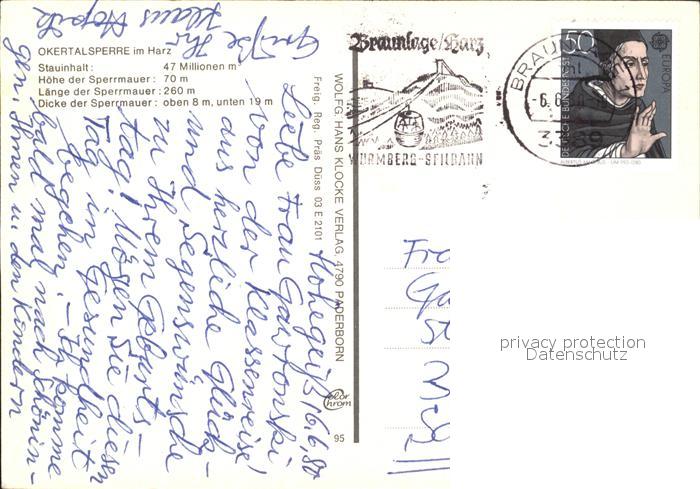 OKERTALSPERRE im Harz
Stauinhalt: 47 Millionen m³
Höhe der Sperrmauer: 70 m
Länge der Sperrmauer: 260 m
Dicke der Sperrmauer: oben 8 m, unten 19 m
Hohegeiß, 6.6.80
Liebe Frau Gawronski!
Von der Klassenreise
aus herzliche Glück-
und Segenswünsche
zu Ihrem Geburts-
tag! Mögen Sie diesen
Tag in Gesundheit
begehen! – Ich komme
bald mal nach Schönin-
gen, Ihnen u. den Kindern
Grüße Ihr
Klaus
WOLFG. HANS KLOCKE VERLAG, 4790 PADERBORN
Freig. Reg. Präs Düss 03 E 2101
color
chrom
95
Braunlage/Harz
WURMBERG-SEILBAHN
BRAUN
-6.6.
50
DEUTSCHE BUNDESPOST
EUROPA
ALBERTUS MAGNUS
Fra
Ga
St
privacy protection
Datenschutz